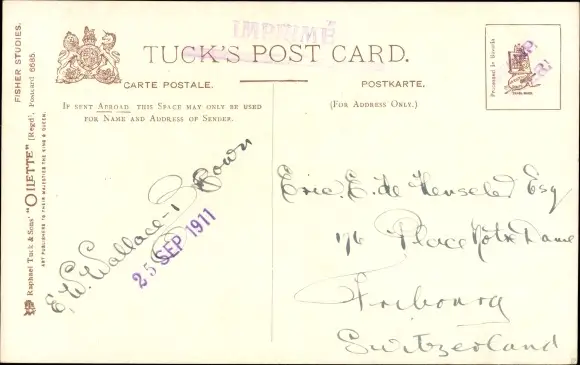 IMPRIMÉ
TUCK'S POST CARD.
CARTE POSTALE.
POSTKARTE.
IF SENT ABROAD, THIS SPACE MAY ONLY BE USED
FOR NAME AND ADDRESS OF SENDER.
(FOR ADDRESS ONLY.)
FISHER STUDIES.
Raphael Tuck & Sons' "OILETTE" [Regd.], Postcard 6685.
ART PUBLISHERS TO THEIR MAJESTIES THE KING & QUEEN.
E. W. Wallace-Brown
25 SEP 1911
Eric. E. de Esq
Place Notre Dame
Fribourg
Switzerland